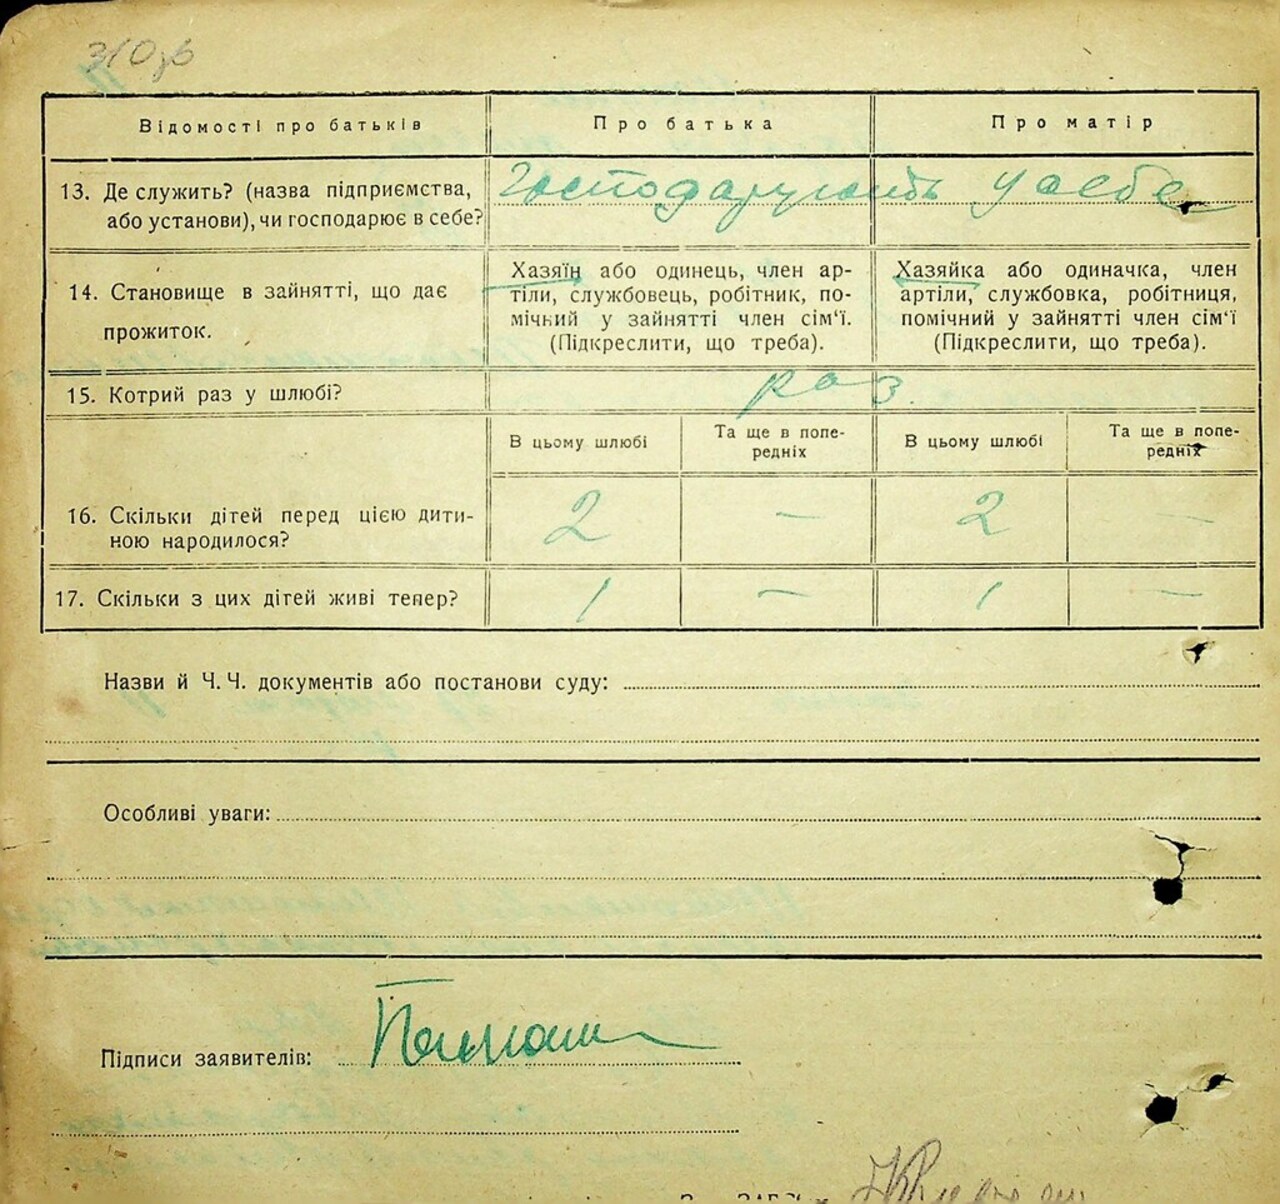 310зв
Відомості про батьків
Про батька
Про матір
13. Де служить? (назва підприємства,
або установи), чи господарює в себе?
Господарують у себе
14. Становище в зайнятті, що дає
прожиток.
Хазяїн або одинець, член ар-
тіли, службовець, робітник, по-
мічний у зайнятті член сім‘ї.
(Підкреслити, що треба).
Хазяйка або одиначка, член
артіли, службовка, робітниця,
помічний у зайнятті член сім‘ї
(Підкреслити, що треба).
15. Котрий раз у шлюбі?
раз.
В цьому шлюбі
Та ще в попе-
редніх
В цьому шлюбі
Та ще в попе-
редніх
16. Скільки дітей перед цією дити-
ною народилося?
2 — 2 —
17. Скільки з цих дітей живі тепер?
1 — 1 —
Назви й Ч. Ч. документів або постанови суду:
Особливі уваги:
Підписи заявителів: